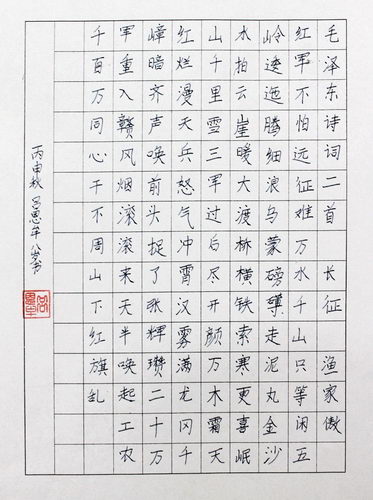 毛泽东诗词二首 长征 渔家傲
红军不怕远征难万水千山只等闲五
岭逶迤腾细浪乌蒙磅礴走泥丸金沙
水拍云崖暖大渡桥横铁索寒更喜岷
山千里雪三军过后尽开颜万木霜天
红烂漫天兵怒气冲霄汉雾满龙冈千
嶂暗齐声唤前头捉了张辉瓒二十万
军重入赣风烟滚滚来天半唤起工农
千百万同心干不周山下红旗乱
丙申秋 吕思 八岁书